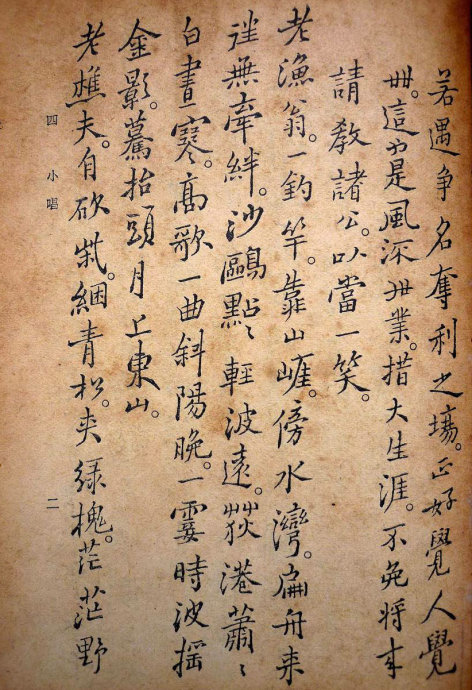 若遇争名奪利之塲。正好覺人覺
世。這也是風流世業。措大生涯。不免將来
請教諸公。以當一笑。
老漁翁。一釣竿。靠山崕。傍水灣。扁舟来
徃無牽絆。沙鷗點〻輕波遠。荻港蕭〻
白晝寒。高歌一曲斜陽晚。一霎時波摇
金影。驀抬頭月上東山。
老樵夫。自砍柴。綑青松。夾綠槐。茫茫野
四 小唱 二